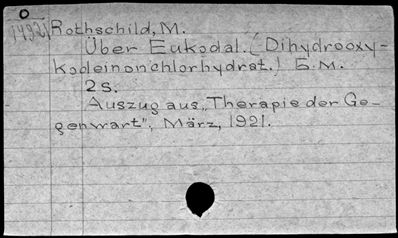 O
Rothschild, M.
Über Eukodal. (Dihydrooxy-
kodeinonchlorhydrat.) E. M.
2 s.
Auszug aus „Therapie der Ge-
genwart", März, 1921.